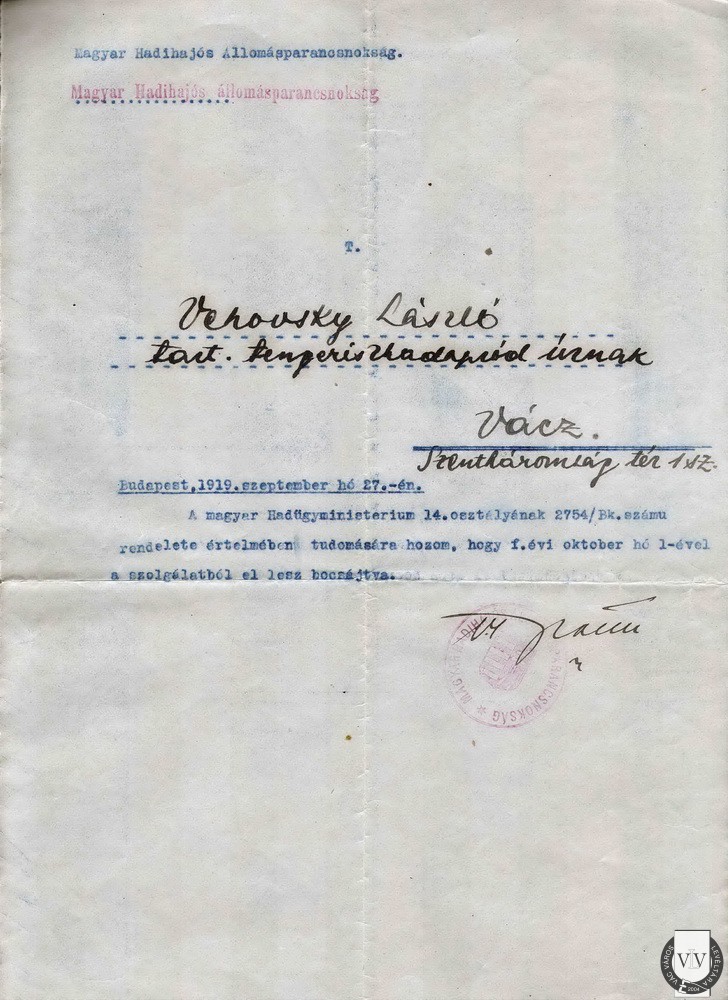 Magyar Hadihajós Állomásparancsnokság.
Magyar Hadihajós állomásparancsnokság
T.
Vehovsky László
tart. tengerészhadapród úrnak
Vácz.
Szentháromság tér 1 sz.
Budapest,1919.szeptember hó 27.-én.
A magyar Hadügyministerium 14.osztályának 2754/Bk.számu
rendelete értelmében tudomására hozom, hogy f.évi oktober hó 1-ével
a szolgálatból el lesz bocsájtva.
MAGYAR PARANCSNOKSÁG
VÁC VÁROS LEVÉLTÁRA
VVL
2004